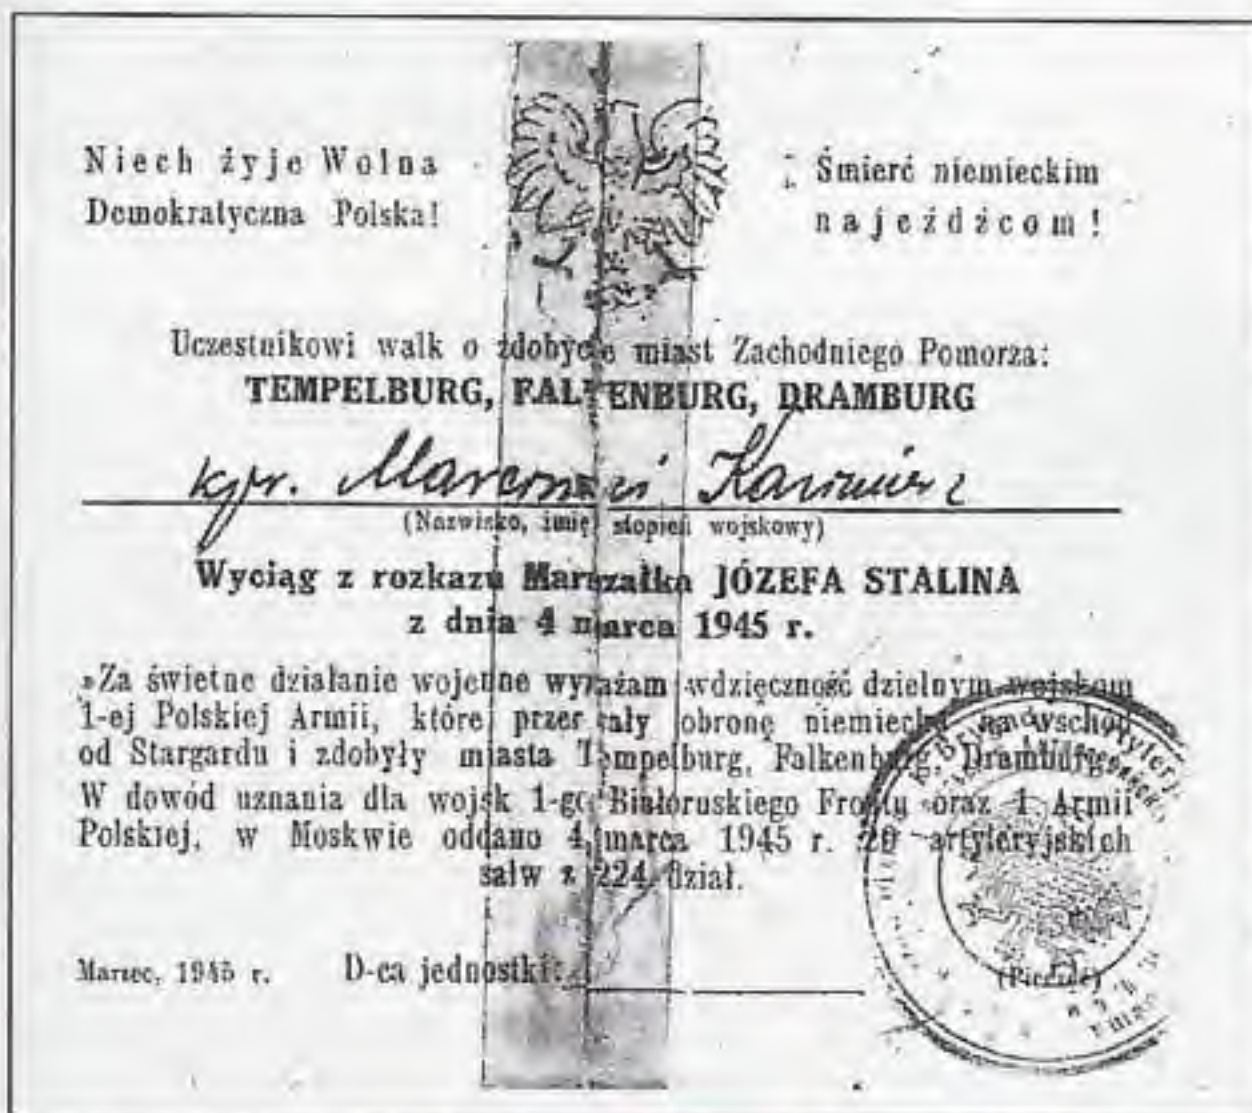 Niech żyje Wolna
Demokratyczna Polska!
Śmierć niemieckim
najeźdźcom!
Uczestnikowi walk o zdobycie miast Zachodniego Pomorza:
TEMPELBURG, FALKENBURG, DRAMBURG
kpr. Kazimierz
(Nazwisko, imię, stopień wojskowy)
Wyciąg z rozkazu Marszałka JÓZEFA STALINA
z dnia 4 marca 1945 r.
»Za świetne działanie wojenne wyrażam wdzięczność dzielnym wojskom
1-ej Polskiej Armii, które przerwały obronę niemiecką na wschód
od Stargardu i zdobyły miasta Tempelburg, Falkenburg, Dramburg«
W dowód uznania dla wojsk 1-go Białoruskiego Frontu oraz 1 Armii
Polskiej, w Moskwie oddano 4 marca 1945 r. 20 artyleryjskich
salw z 224 dział.
Marzec, 1945 r. D-ca jednostki:
(Pieczęć)